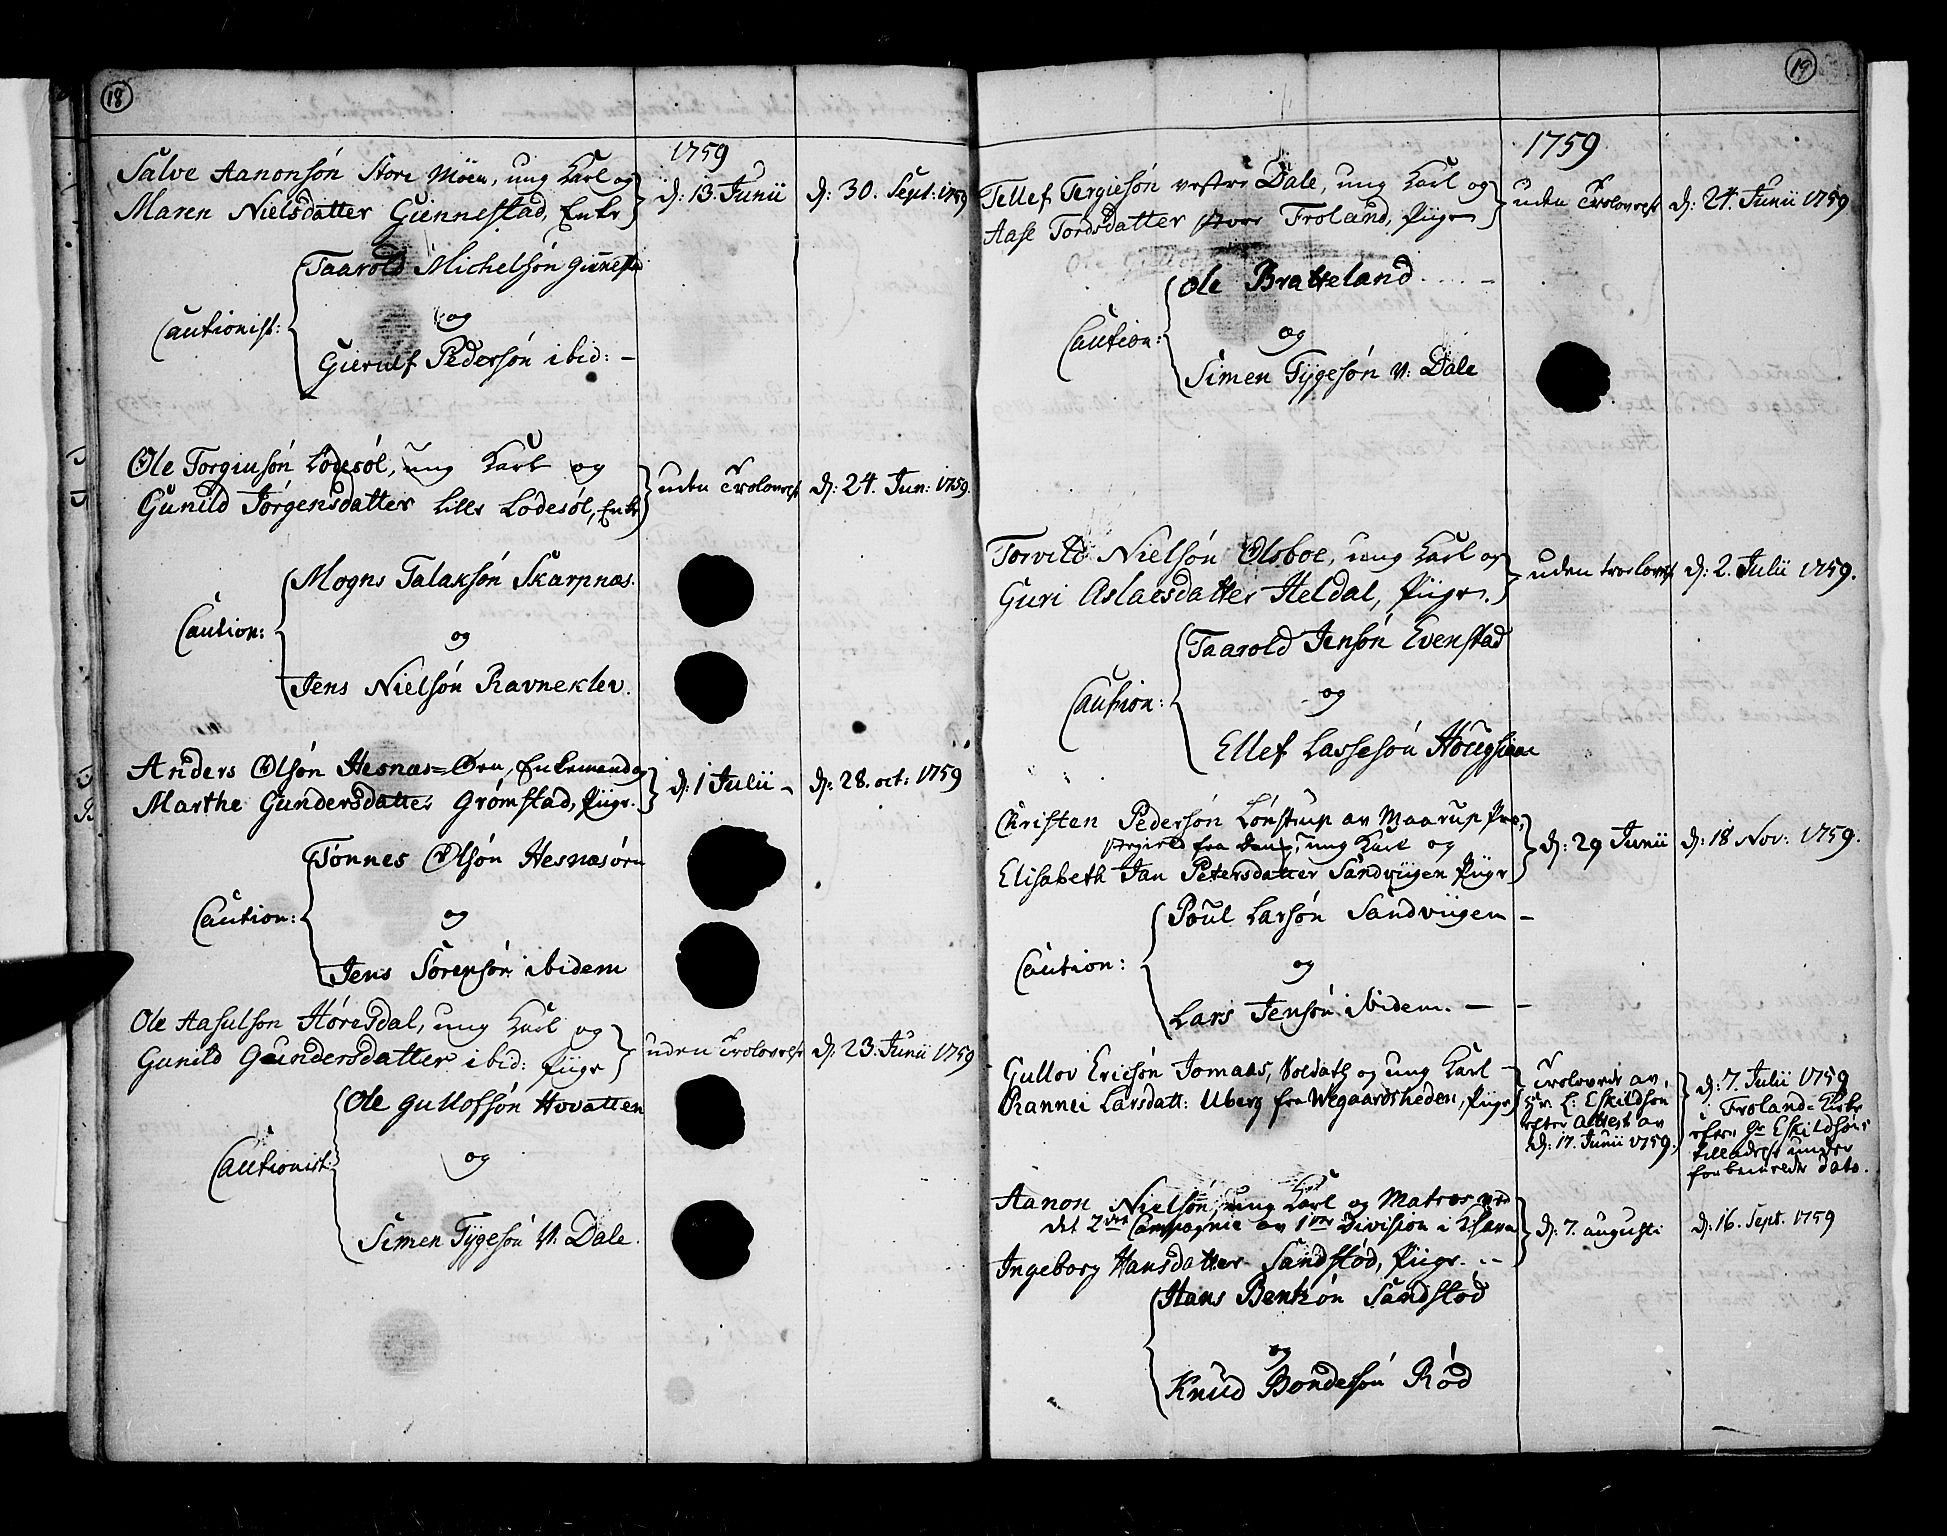 18
1759
Salve Aanonsón Store Möen, ung Karl og
Maren Nielsdatter Giennestad, Enke
d: 13 Junii
d: 30. Sept: 1759
Taarold Michelsón Giennesta
Cautionist:
og
Gierulf Pedersón ibid: –
Ole Torgiusón Lodesól, ung Karl og
Gunild Jórgensdatter Lille Lodesól, Enke
uden Trolovelse
d: 24. Jun: 1759.
Mogns Talaksón Skarpnæs.
Caution:
og
Jens Nielsón Ravneklev.
Anders Olsón Hesnæs=Øen, Enkemand og
Marthe Gundersdatter Grómstad, Piige.
d: 1 Julii –
d: 28. oct: 1759
Tónnes Olsón Hesnæsóen
Caution:
og
Jens Sórensón ibidem
Ole Aasulsón Hóresdal, ung Karl og
Gunild Gundersdatter ibid: Piige
uden Trolovelse
d: 23. Junii 1759
Ole Gullofsón Hovatten
Cautionist:
og
Simen Tygesón V. Dale.
19
1759
Tellef Tergiesón vestre Dale, ung Karl og
Aase Tordsdatter Froland, Piige
uden Trolovelse
d: 24. Junii 1759
Ole Bratteland
Caution:
og
Simen Tygesón V: Dale
Torvild Nielsón Olsboe, ung Karl og
Guri Aslacsdatter Heldal, Piige.
uden trolovelse
d: 2. Julii 1759.
Taarold Jensón Evenstad
Caution:
og
Ellef Lassesón
Christen Pedersón Lónstrup av Maarup Præ-
stegield fra Dan:, ung Karl og
Elisabeth Jan Petersdatter Sandviigen Piige
d: 29 Junii
d: 18 Nov: 1759.
Poul Larsón Sandviigen –
Caution:
og
Lars Jensón ibidem. – –
Gullov Ericsón Jomaas, Soldath og ung Karl
Rannei Larsdatt: Uberg fra Wegaardsheden, Piige
Trolovede av
Hr. L: Eskildsón
efter Attest av
d: 17. Junii 1759.
d: 7. Julii 1759
i Froland=Kirke
efter Hr Eskildsóns
tilladelse under
forbemeldte dato.
Aanon Nielsón, ung Karl og Matros ved
det 2det Compagnie av 1ste Division i
Ingeborg Hansdatter Sandstód, Piige.
d: 7. augusti
d: 16. Sept. 1759
Hans Bentsón Sandstód
og
Knud BondesónRód